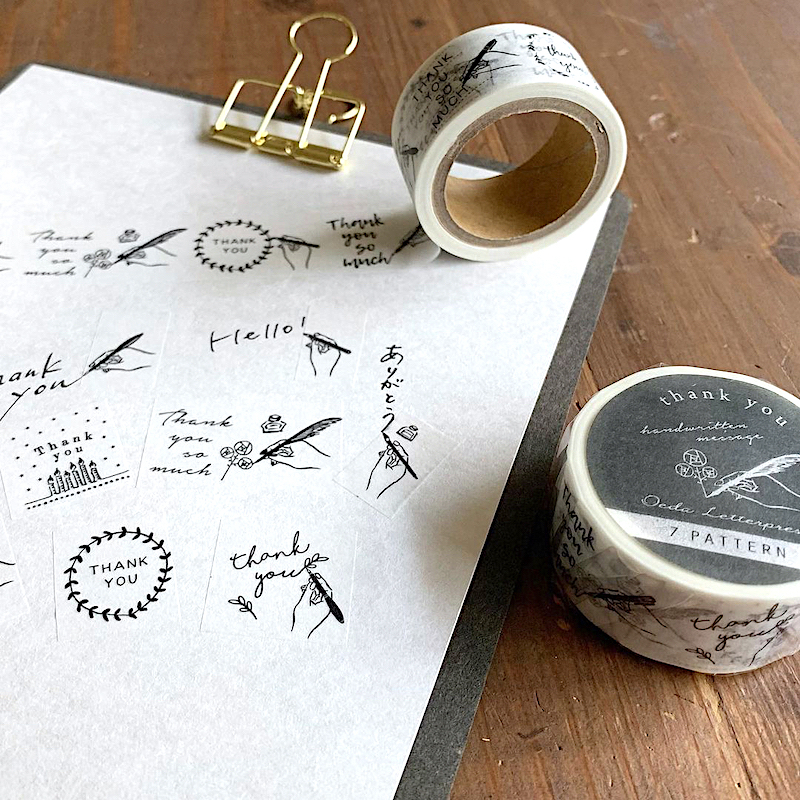 THANK
YOU
SO
MUCH
Thank
you
so
much
THANK
YOU
Thank
you
so
much
you
Hello!
ありがとう
Thank
you
Thank
you
so
much
THANK
YOU
thank
you
thank you
handwritten
message
7 PATTERN
Thank
you
so
thank
you